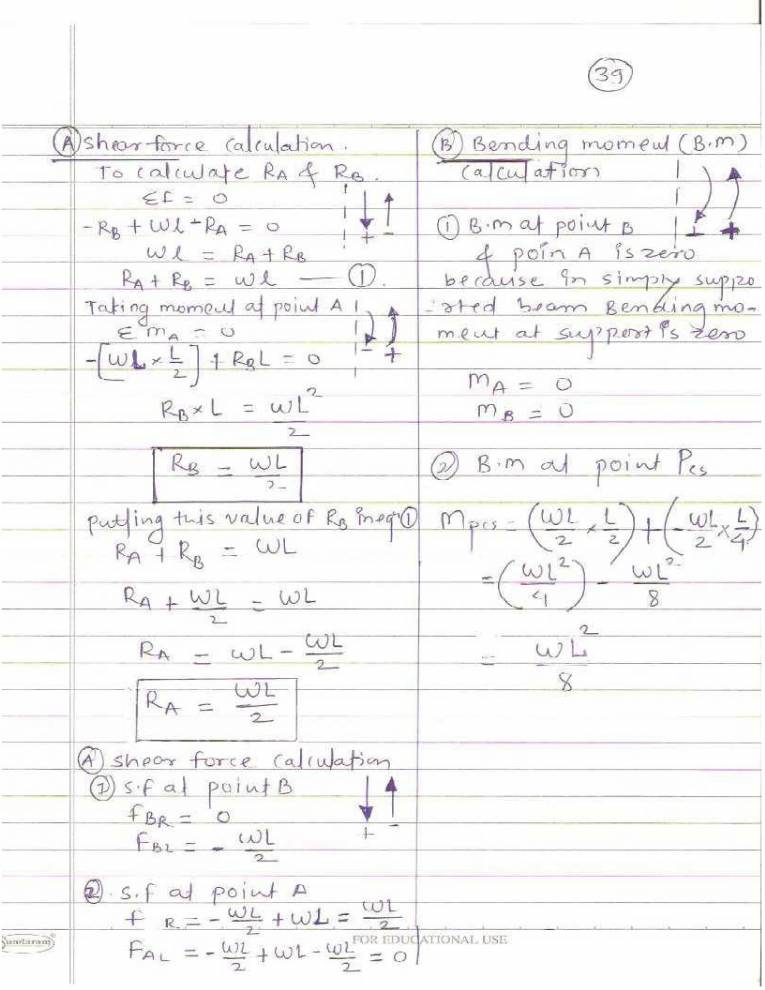 39
Ⓐ Shear force Calculation.
To calculate RA & RB.
Σf = 0
-RB + Wl - RA = 0
Wl = RA + RB
RA + RB = wl — ①.
+ -
Taking moment at point A
Σ mA = 0
-[WL × L/2] + RBL = 0
- +
RB × L = WL²/2
RB = WL/2
putting this value of RB in eqn ①
RA + RB = WL
RA + WL/2 = WL
RA = WL - WL/2
RA = WL/2
Ⓐ shear force calculation
① S.f at point B
fBR = 0
FBL = - WL/2
+ -
② S.f at point A
f R = - WL/2 + WL = WL/2
FAL = - WL/2 + WL - WL/2 = 0
Ⓑ Bending moment (B.m)
Calculation
① B.m at point B
& poin A is zero
because in simply suppo
-rted beam Bending mo-
ment at support is zero
mA = 0
mB = 0
② B.m at point Pcs
Mpcs = (WL/2 × L/2) + (-WL/2 × L/4)
= (WL²/4) - WL²/8
= WL²/8
Sundaram
FOR EDUCATIONAL USE